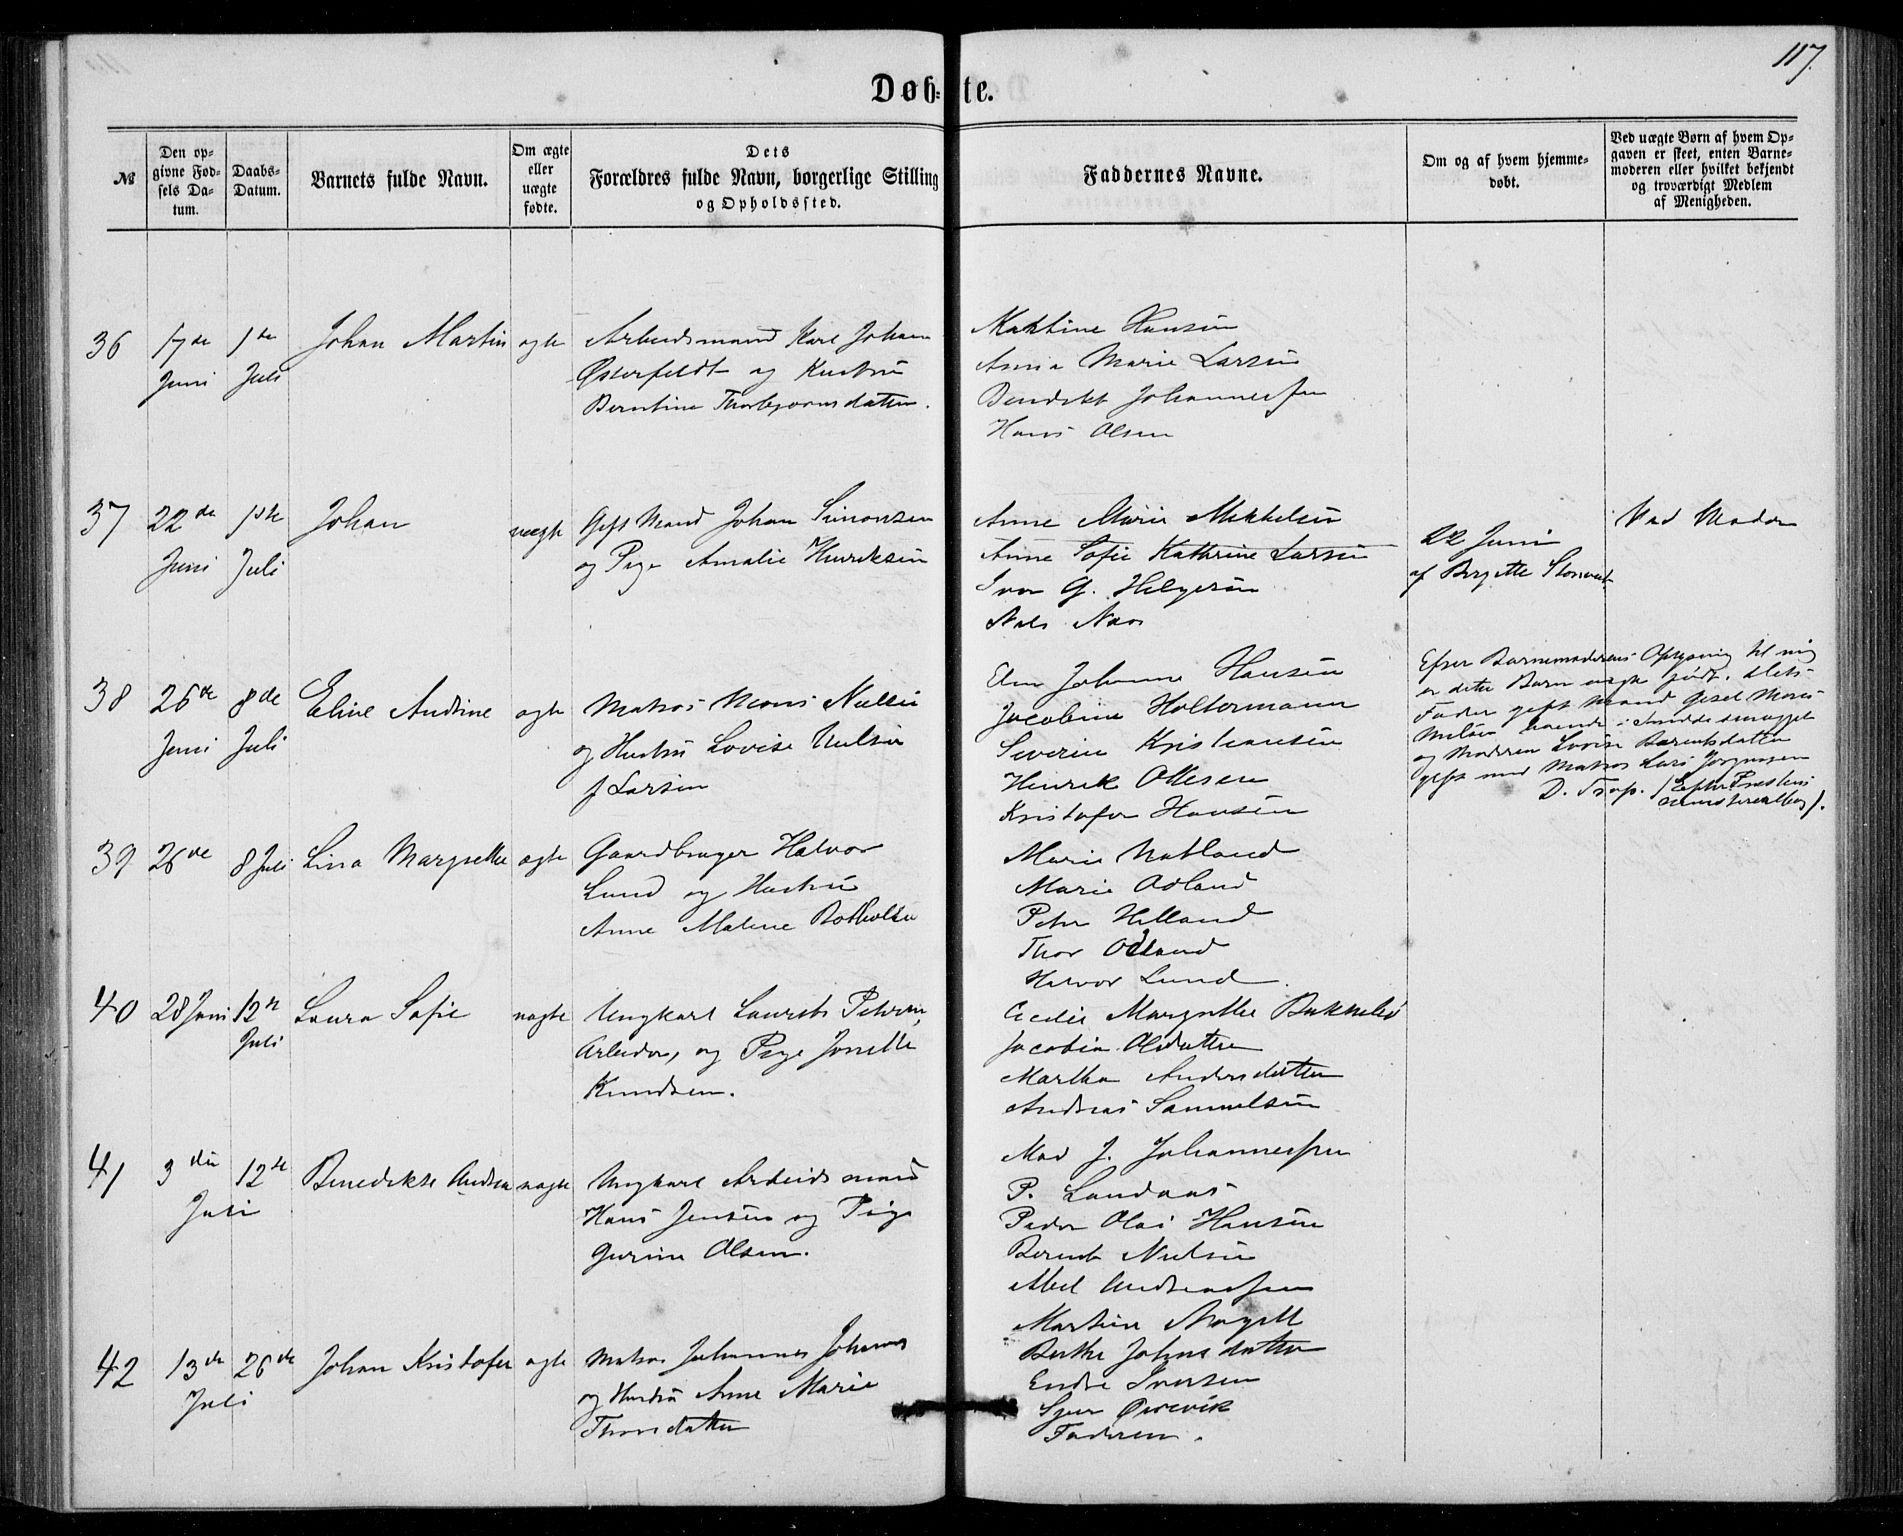 117.
Døb-te.
№
Den op-
givne Fød-
sels Da-
tum.
Daabs-
Datum.
Barnets fulde Navn.
Om ægte
eller
uægte
fødte.
Dets
Forældres fulde Navn, borgerlige Stilling
og Opholdssted.
Faddernes Navne.
Om og af hvem hjemme-
døbt.
Ved uægte Børn af hvem Op-
gaven er skeet, enten Barne-
moderen eller hvilket bekjendt
og troværdigt Medlem
af Menigheden.
36
17de
Juni
1ste
Juli
Johan Martin
ægte
Arbeidsmand Karl Johan
Østerfeldt og Hustru
Berntine Thorbjørnsdatter.
Mathine Hansen
Anna Marie Larsen
Bendikt Johannessen
Hans Olsen
37
22de
Juni
1ste
Juli
Johan
uægte
Gift Mand Johan Simonsen
og Pige Amalie Henriksen
Anne Marie Mikkelsen
Anne Sofie Kathrine Larsen
Ivar G. Helgesen
Nils Naes
22 Juni
af Bergitte
Ved Moder
38
26de
Juni
8de
Juli
Eline Andrine
ægte
Matros Mons Nielsen
og Hustru Lovise Nielsen
f Larsen
Johanne Hansen
Jacobine Holtermann
Severin Kristiansen
Henrik Olsen
Kristofer Hansen
Efter Barnemoderens Opgivning til mig
er dette Barn uægte født, dets
Fader gift Mand Mons
Nielsen boende i
og Moderen Lovise Berentsdatter
gift med Matros Lars Jørgensen
D. Trap. (Efter Præstens
39
26de
8 Juli
Lina Margrethe
ægte
Gaardbruger Halvor
Lund og Hustru
Anne Malene Botholfsen
Marie Natland
Marie Adland
Peter Helland
Thor Odland
Halvor Lund.
40
28 Juni
12te
Juli
Laura Sofie
uægte
Ungkarl Laurits Petersen,
Arbeider, og Pige Jonette
Knudsen.
Cecilie Margrethe Bakkebø
Jacobia Olsdatter
Martha Andersdatter
Andreas Samuelsen
41
3die
Juli
12te
Benedikte Andrea
uægte
Ungkarl Arbeidsmand
Hans Jensen og Pige
Gurine Olsen.
Mad J. Johannessen
P. Landaas
Peder Olai Hansen
Berent Nielsen
Abel Andreassen
42
13de
Juli
26de
Johan Kristofer
ægte
Matros Johannes Johannes
og Hustru Anne Marie
Thorsdatter
Martine
Berthe Johnsdatter
Endre Iversen
Sjur Ørrevik
Faderen.